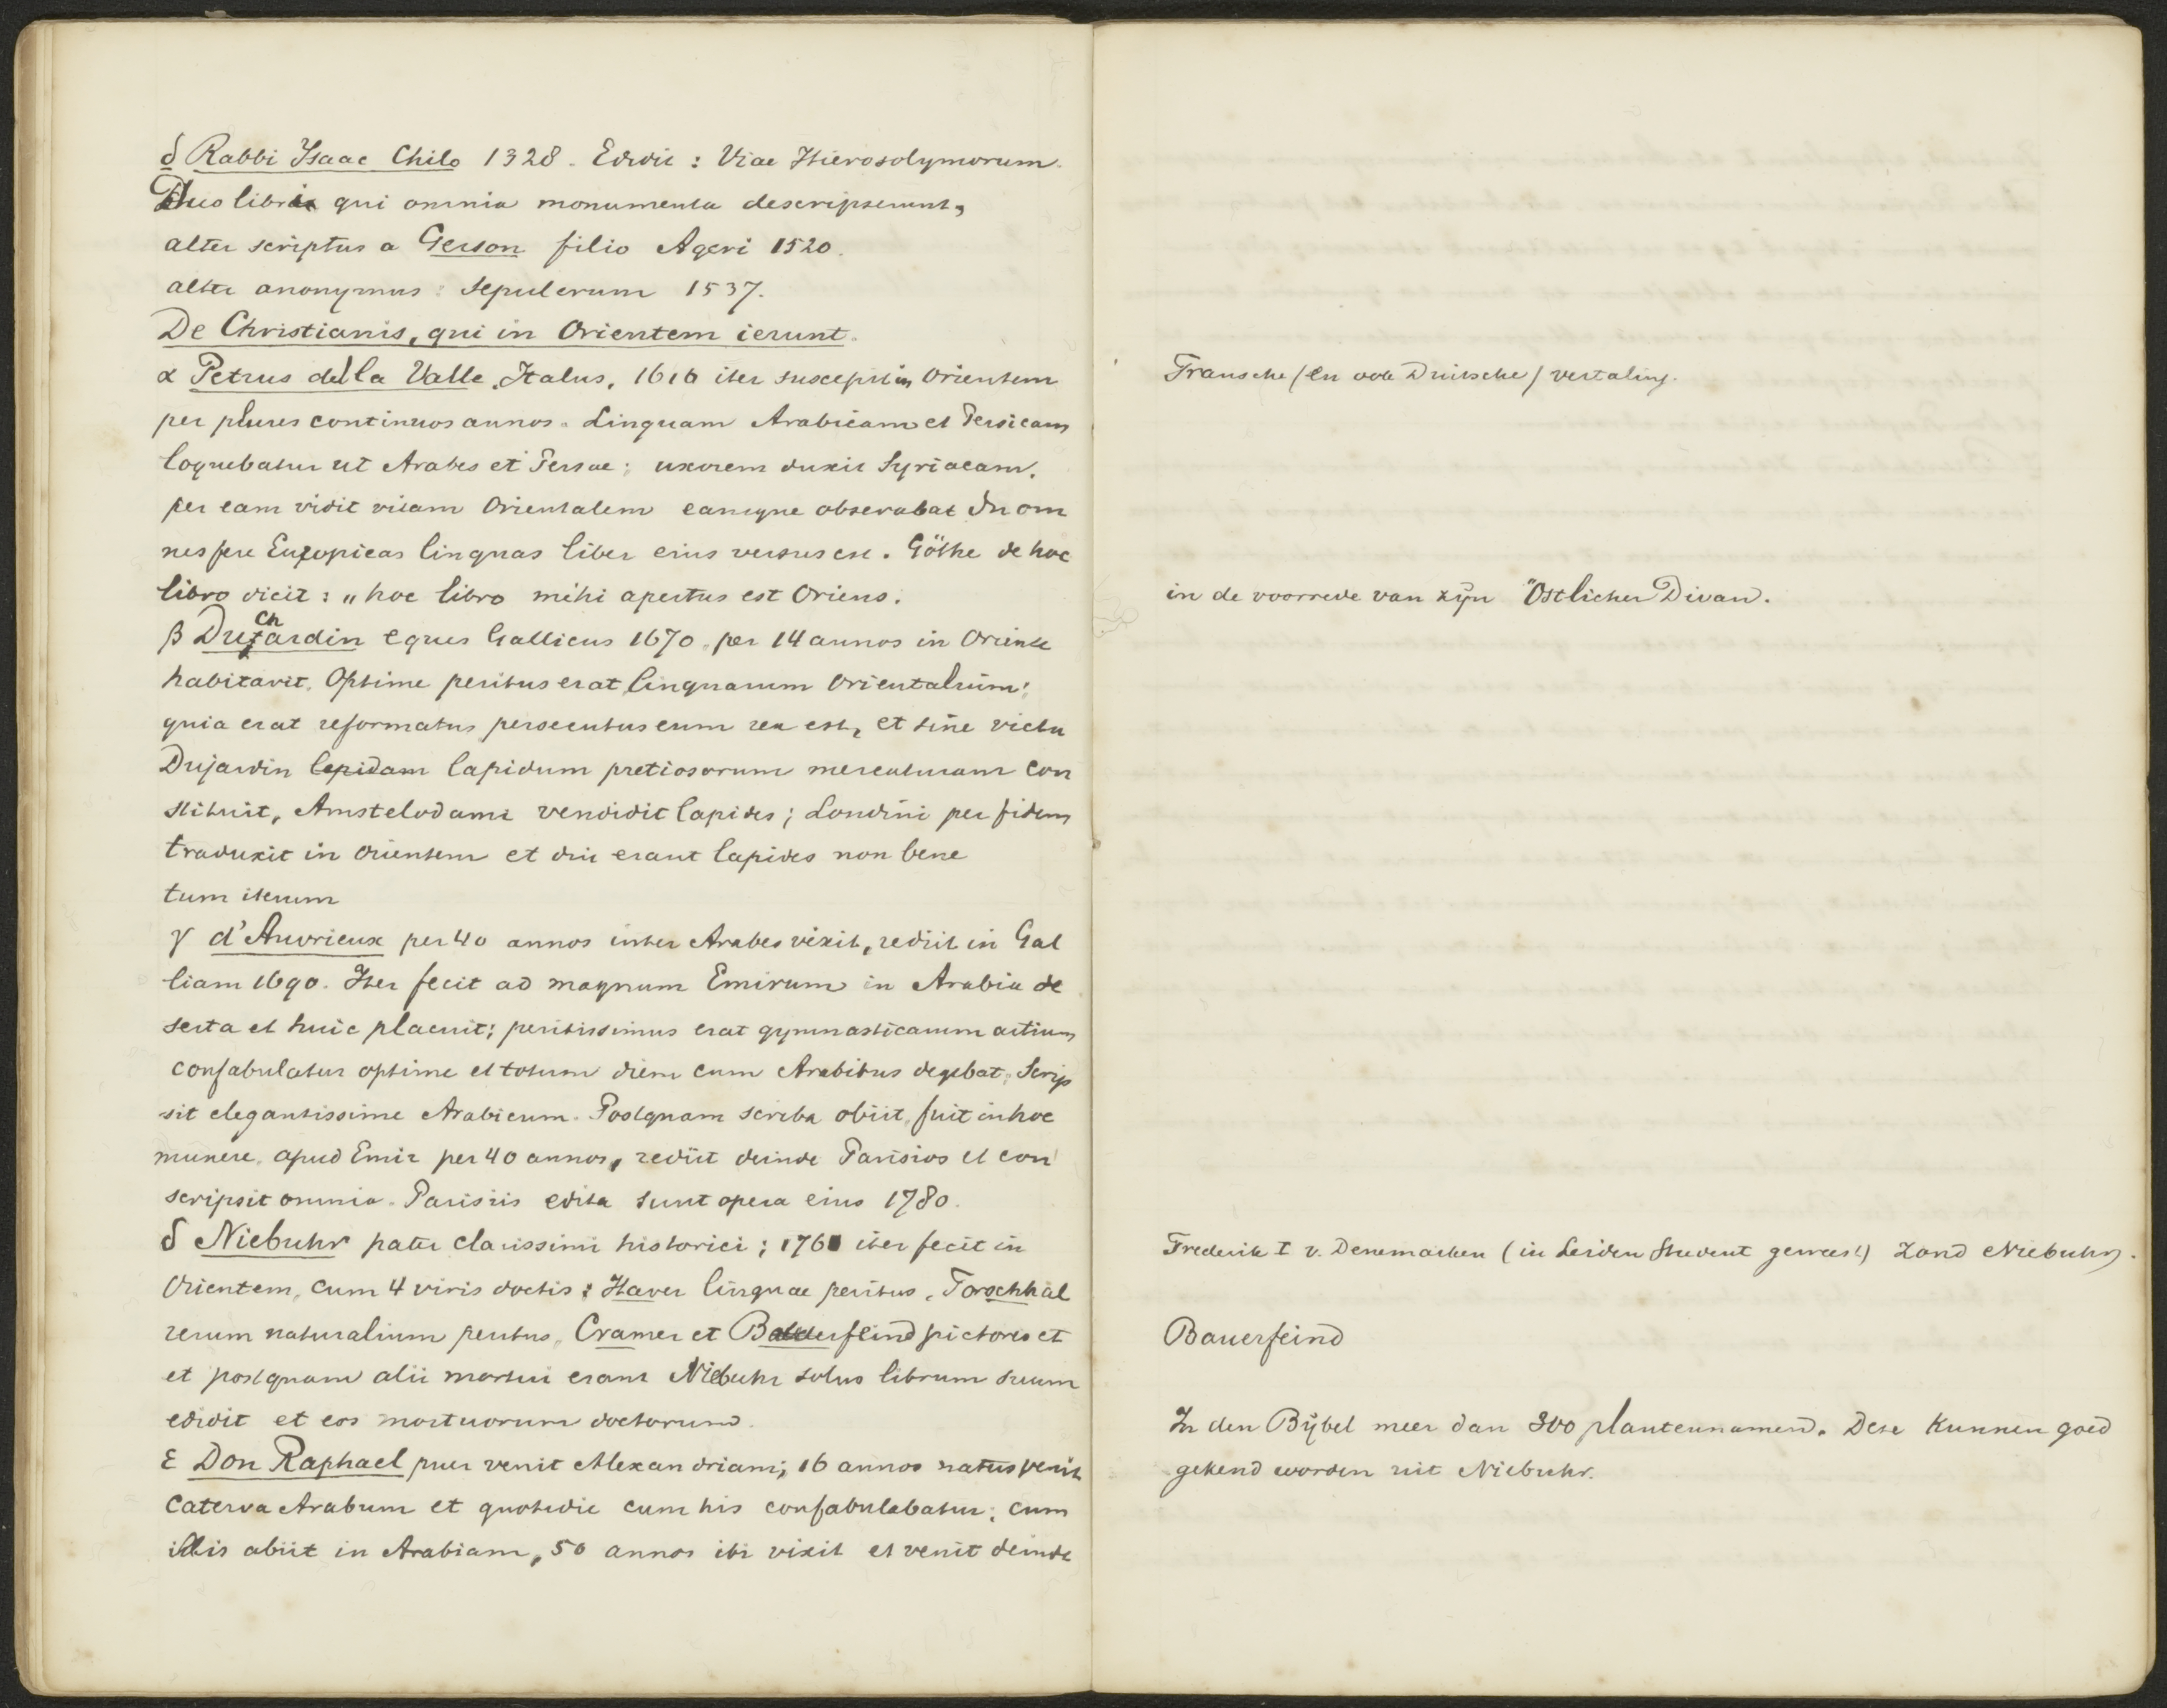 δ Rabbi Isaac Chilo 1328. Edidit: Viae Hierosolymorum.
Duo libri qui omnia monumenta descripserunt,
alter scriptus a Gerson filio Ageri 1520.
alter anonymus: Sepulcrum 1537.
De Christianis, qui in Orientem ierunt.
α Petrus della Valle, Italus, 1616 iter suscepit in Orientem
per plures continuos annos. Linguam Arabicam et Persicam
loquebatur ut Arabes et Persae; uxorem duxit Syriacam.
per eam vidit vitam Orientalem eamque observabat In om
nes fere Europicas linguas liber eius versus est. Göthe de hoc
libro dicit: „hoc libro mihi apertus est Oriens.
β Duchardin eques Gallicus 1670. per 14 annos in Oriente
habitavit. Optime peritus erat linguarum Orientalium;
quia erat reformatus persecutus eum rex est, et sine victu
Dujardin lepidam lapidum pretiosorum mercaturam con
stituit, Amstelodami vendidit lapides; Londini per fidem
traduxit in Orientem et diu erant lapides non bene
tum iterum
γ d'Auvrieux per 40 annos inter Arabes vixit, rediit in Gal
liam 1690. Iter fecit ad magnum Emirum in Arabia de
serta et huic placuit; peritissimus erat gymnasticarum artium
confabulatur optime et totum diem cum Arabibus degebat. Scrip
sit elegantissime Arabicum. Postquam scriba obiit, fuit in hoc
munere apud Emir per 40 annos, rediit deinde Parisios et con
scripsit omnia. Parisiis edita sunt opera eius 1780.
δ Niebuhr pater clarissimi historici; 1761 iter fecit in
Orientem, cum 4 viris doctis: Haver linguae peritus, Forschhäl
rerum naturalium peritus, Cramer et Balderfeind pictores et
et postquam alii mortui erant Niebuhr solus librum suum
edidit et eos mortuorum doctorum.
ε Don Raphael puer venit Alexandriam; 16 annos natus venit
caterva Arabum et quotidie cum his confabulabatur; cum
illis abiit in Arabiam, 50 annos ibi vixit et venit deinde
Fransche (en ook Duitsche) vertaling.
in de voorrede van zijn Östlicher Divan.
Frederik I v. Denemarken (in Leiden Student geweest) zond Niebuhr.
Bauerfeind
In den Bijbel meer dan 300 plantennamen. Deze kunnen goed
gekend worden uit Niebuhr.